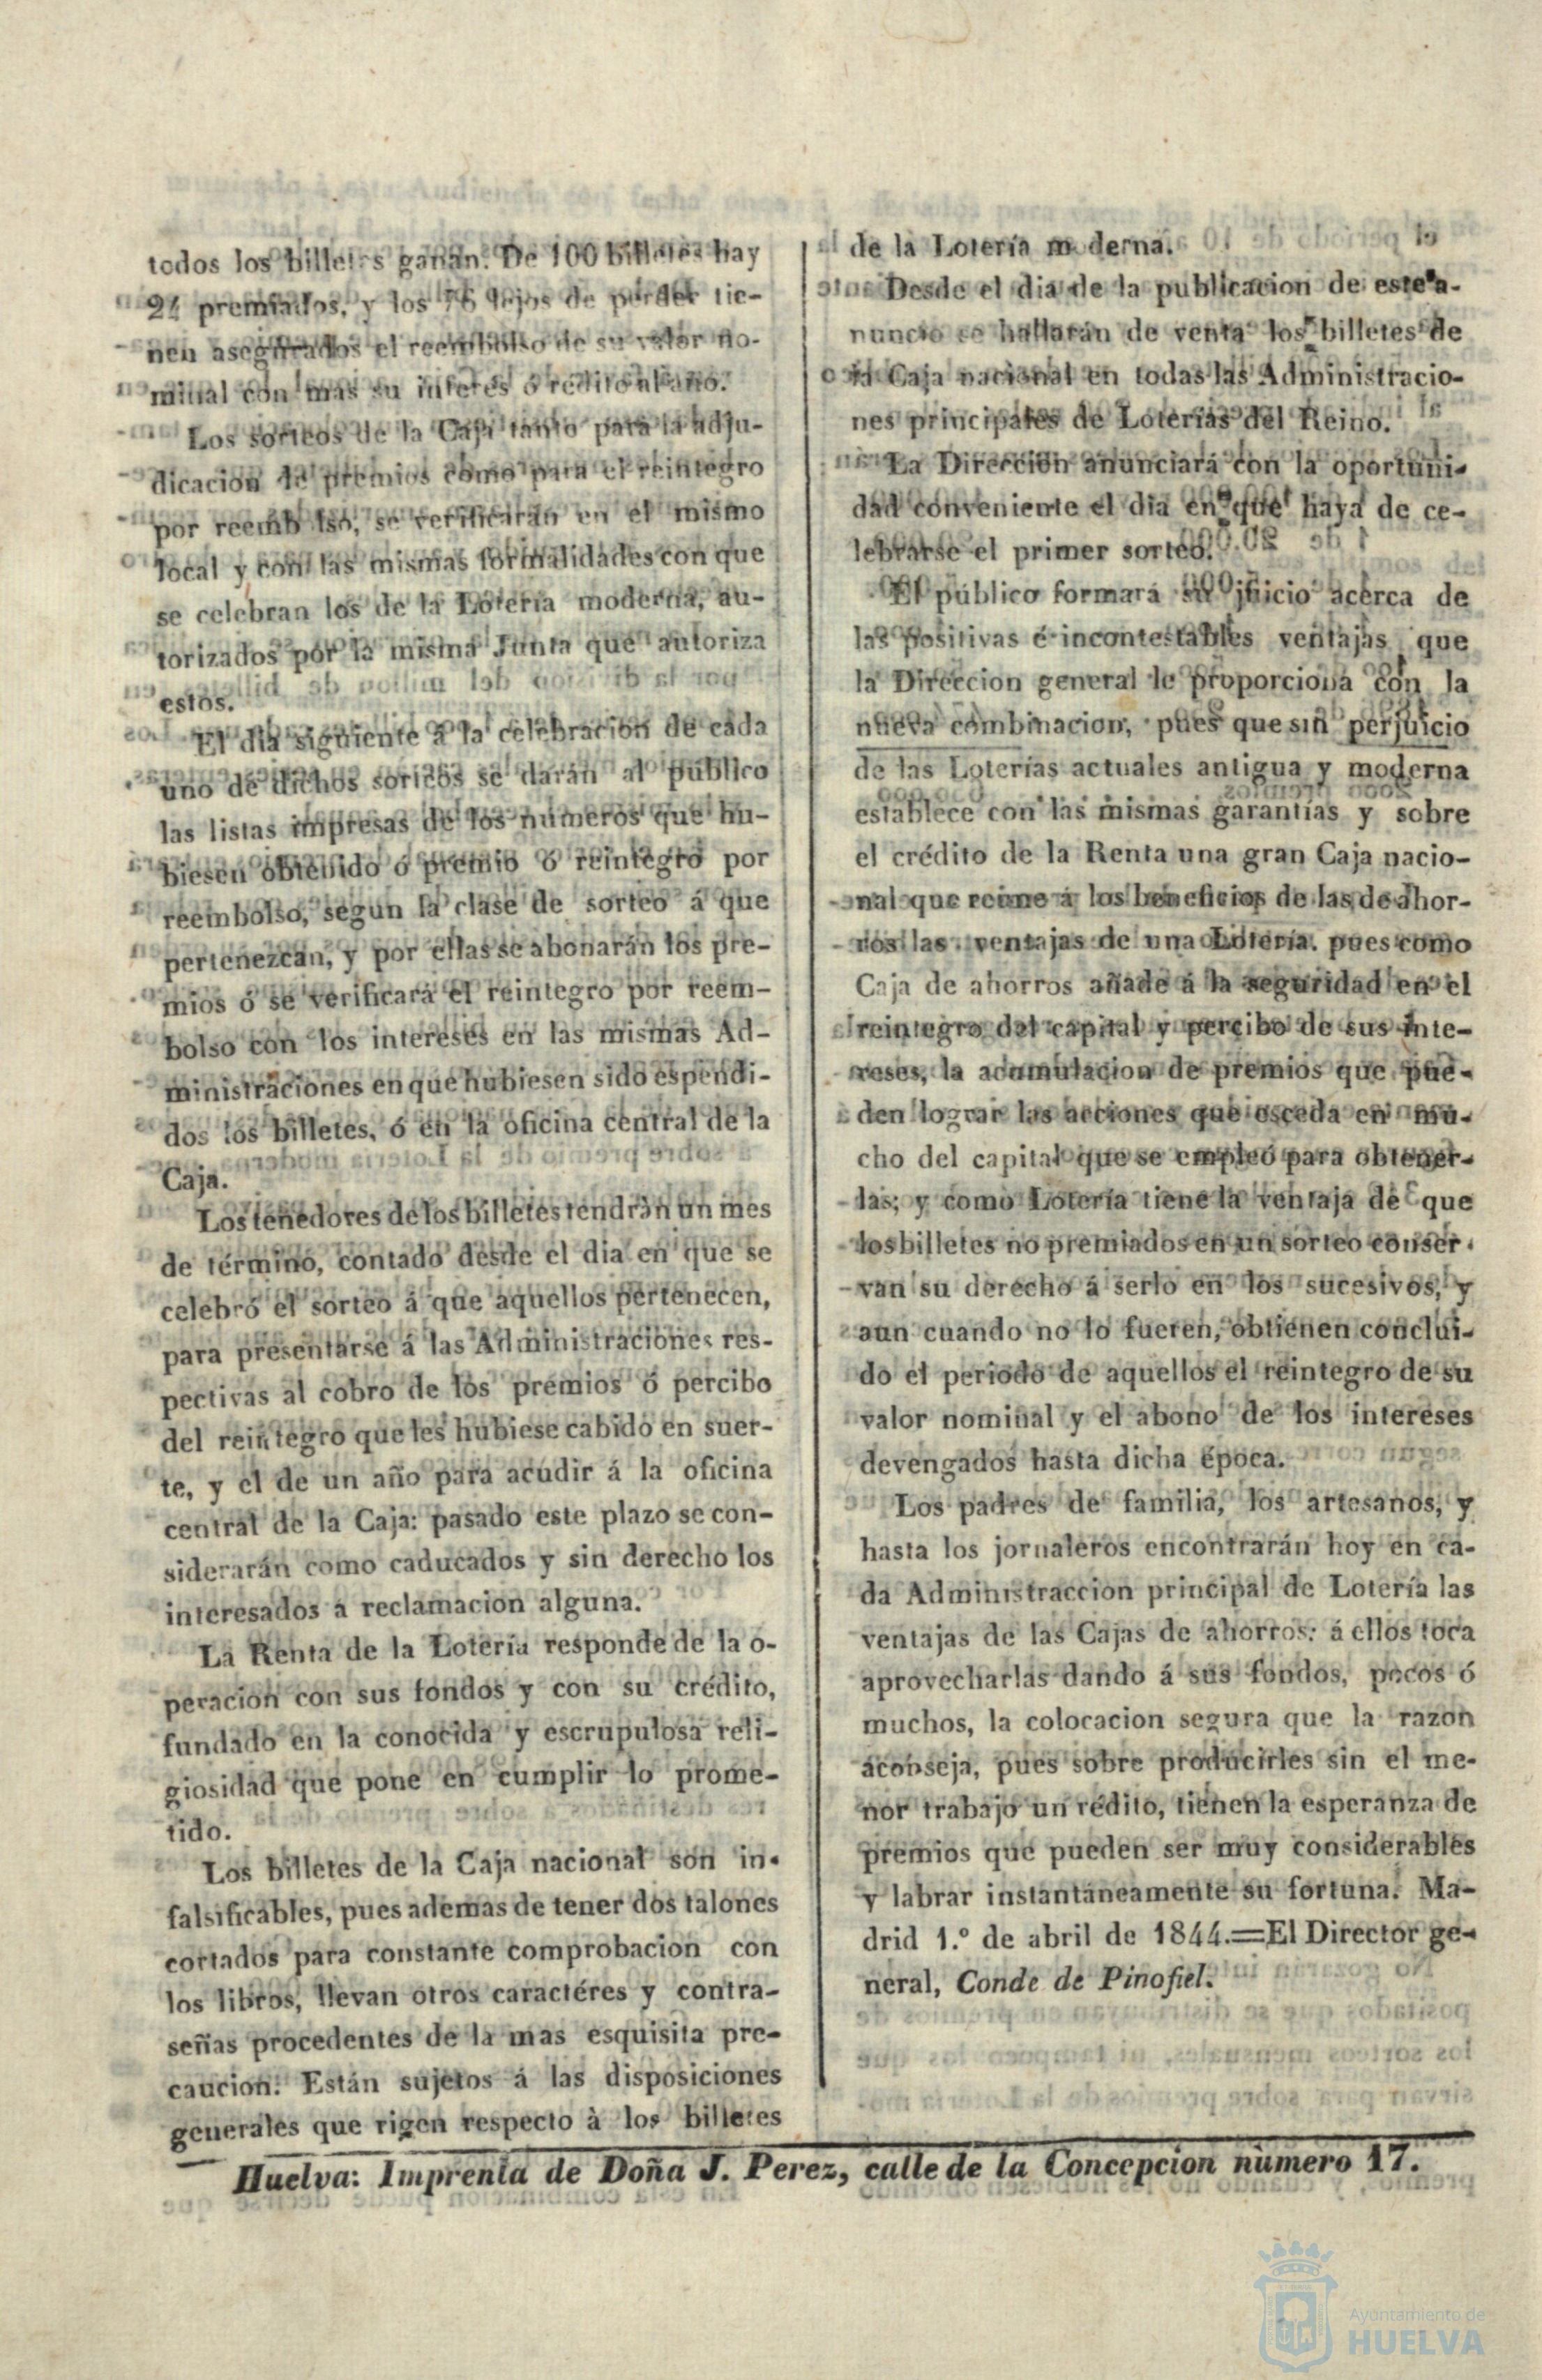 todos los billetes ganan. De 100 billetes hay
24 premiados, y los 76 lejos de perder tie-
nen asegurados el reembolso de su valor no-
minal con mas su interés ó rédito al año.
Los sorteos de la Caja tanto para la adju-
dicacion de premios como para el reintegro
por reembolso, se verificarán en el mismo
local y con las mismas formalidades con que
se celebran los de la Lotería moderna, au-
torizados por la misma Junta que autoriza
estos.
El dia siguiente á la celebracion de cada
uno de dichos sorteos se darán al público
las listas impresas de los números que hu-
biesen obtenido ó premio ó reintegro por
reembolso, segun la clase de sorteo á que
pertenezcan, y por ellas se abonarán los pre-
mios ó se verificará el reintegro por reem-
bolso con los intereses en las mismas Ad-
ministraciones en que hubiesen sido espendi-
dos los billetes, ó en la oficina central de la
Caja.
Los tenedores de los billetes tendràn un mes
de término, contado desde el dia en que se
celebró el sorteo á que aquellos pertenecen,
para presentarse á las Administraciones res-
pectivas al cobro de los premios ó percibo
del reintegro que les hubiese cabido en suer-
te, y el de un año para acudir á la oficina
central de la Caja: pasado este plazo se con-
siderarán como caducados y sin derecho los
interesados a reclamacion alguna.
La Renta de la Lotería responde de la o-
peracion con sus fondos y con su crédito,
fundado en la conocida y escrupulosa reli-
giosidad que pone en cumplir lo prome-
tido.
Los billetes de la Caja nacional son in-
falsificables, pues ademas de tener dos talones
cortados para constante comprobacion con
los libros, llevan otros caractéres y contra-
señas procedentes de la mas esquisita pre-
caucion. Están sujetos á las disposiciones
generales que rigen respecto à los billetes
de la Lotería moderna.
Desde el dia de la publicacion de este a-
nuncio se hallarán de venta los billetes de
la Caja nacional en todas las Administracio-
nes principales de Loterías del Reino.
La Direccion anunciará con la oportuni-
dad conveniente el dia en que haya de ce-
lebrarse el primer sorteo.
El público formará su juicio acerca de
las positivas é incontestables ventajas que
la Direccion general le proporciona con la
nueva combinacion, pues que sin perjuicio
de las Loterías actuales antigua y moderna
establece con las mismas garantías y sobre
el crédito de la Renta una gran Caja nacio-
nal que reune á los beneficios de las de ahor-
ros las ventajas de una Lotería. pues como
Caja de ahorros añade á la seguridad en el
reintegro del capital y percibo de sus inte-
reses, la acumulacion de premios que pue-
den lograr las acciones que esceda en mu-
cho del capital que se empleó para obtener-
las; y como Lotería tiene la ventaja de que
los billetes no premiados en un sorteo conser-
van su derecho á serlo en los sucesivos, y
aun cuando no lo fueren, obtienen conclui-
do el periodo de aquellos el reintegro de su
valor nominal y el abono de los intereses
devengados hasta dicha época.
Los padres de familia, los artesanos, y
hasta los jornaleros encontrarán hoy en ca-
da Administraccion principal de Lotería las
ventajas de las Cajas de ahorros: á ellos toca
aprovecharlas dando á sus fondos, pocos ó
muchos, la colocacion segura que la razon
aconseja, pues sobre producirles sin el me-
nor trabajo un rédito, tienen la esperanza de
premios que pueden ser muy considerables
y labrar instantáneamente su fortuna. Ma-
drid 1.º de abril de 1844.=El Director ge-
neral, Conde de Pinofiel.
Huelva: Imprenta de Doña J. Perez, calle de la Concepcion número 17.
Ayuntamiento de
HUELVA